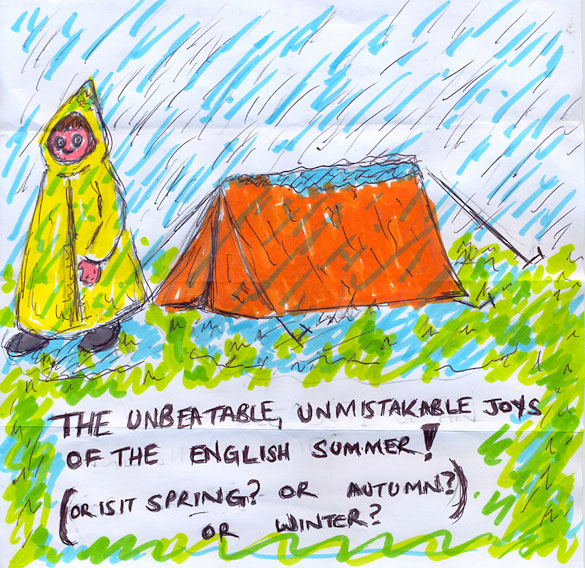 THE UNBEATABLE, UNMISTAKABLE JOYS
OF THE ENGLISH SUMMER!
(OR IS IT SPRING? OR AUTUMN?)
OR WINTER?